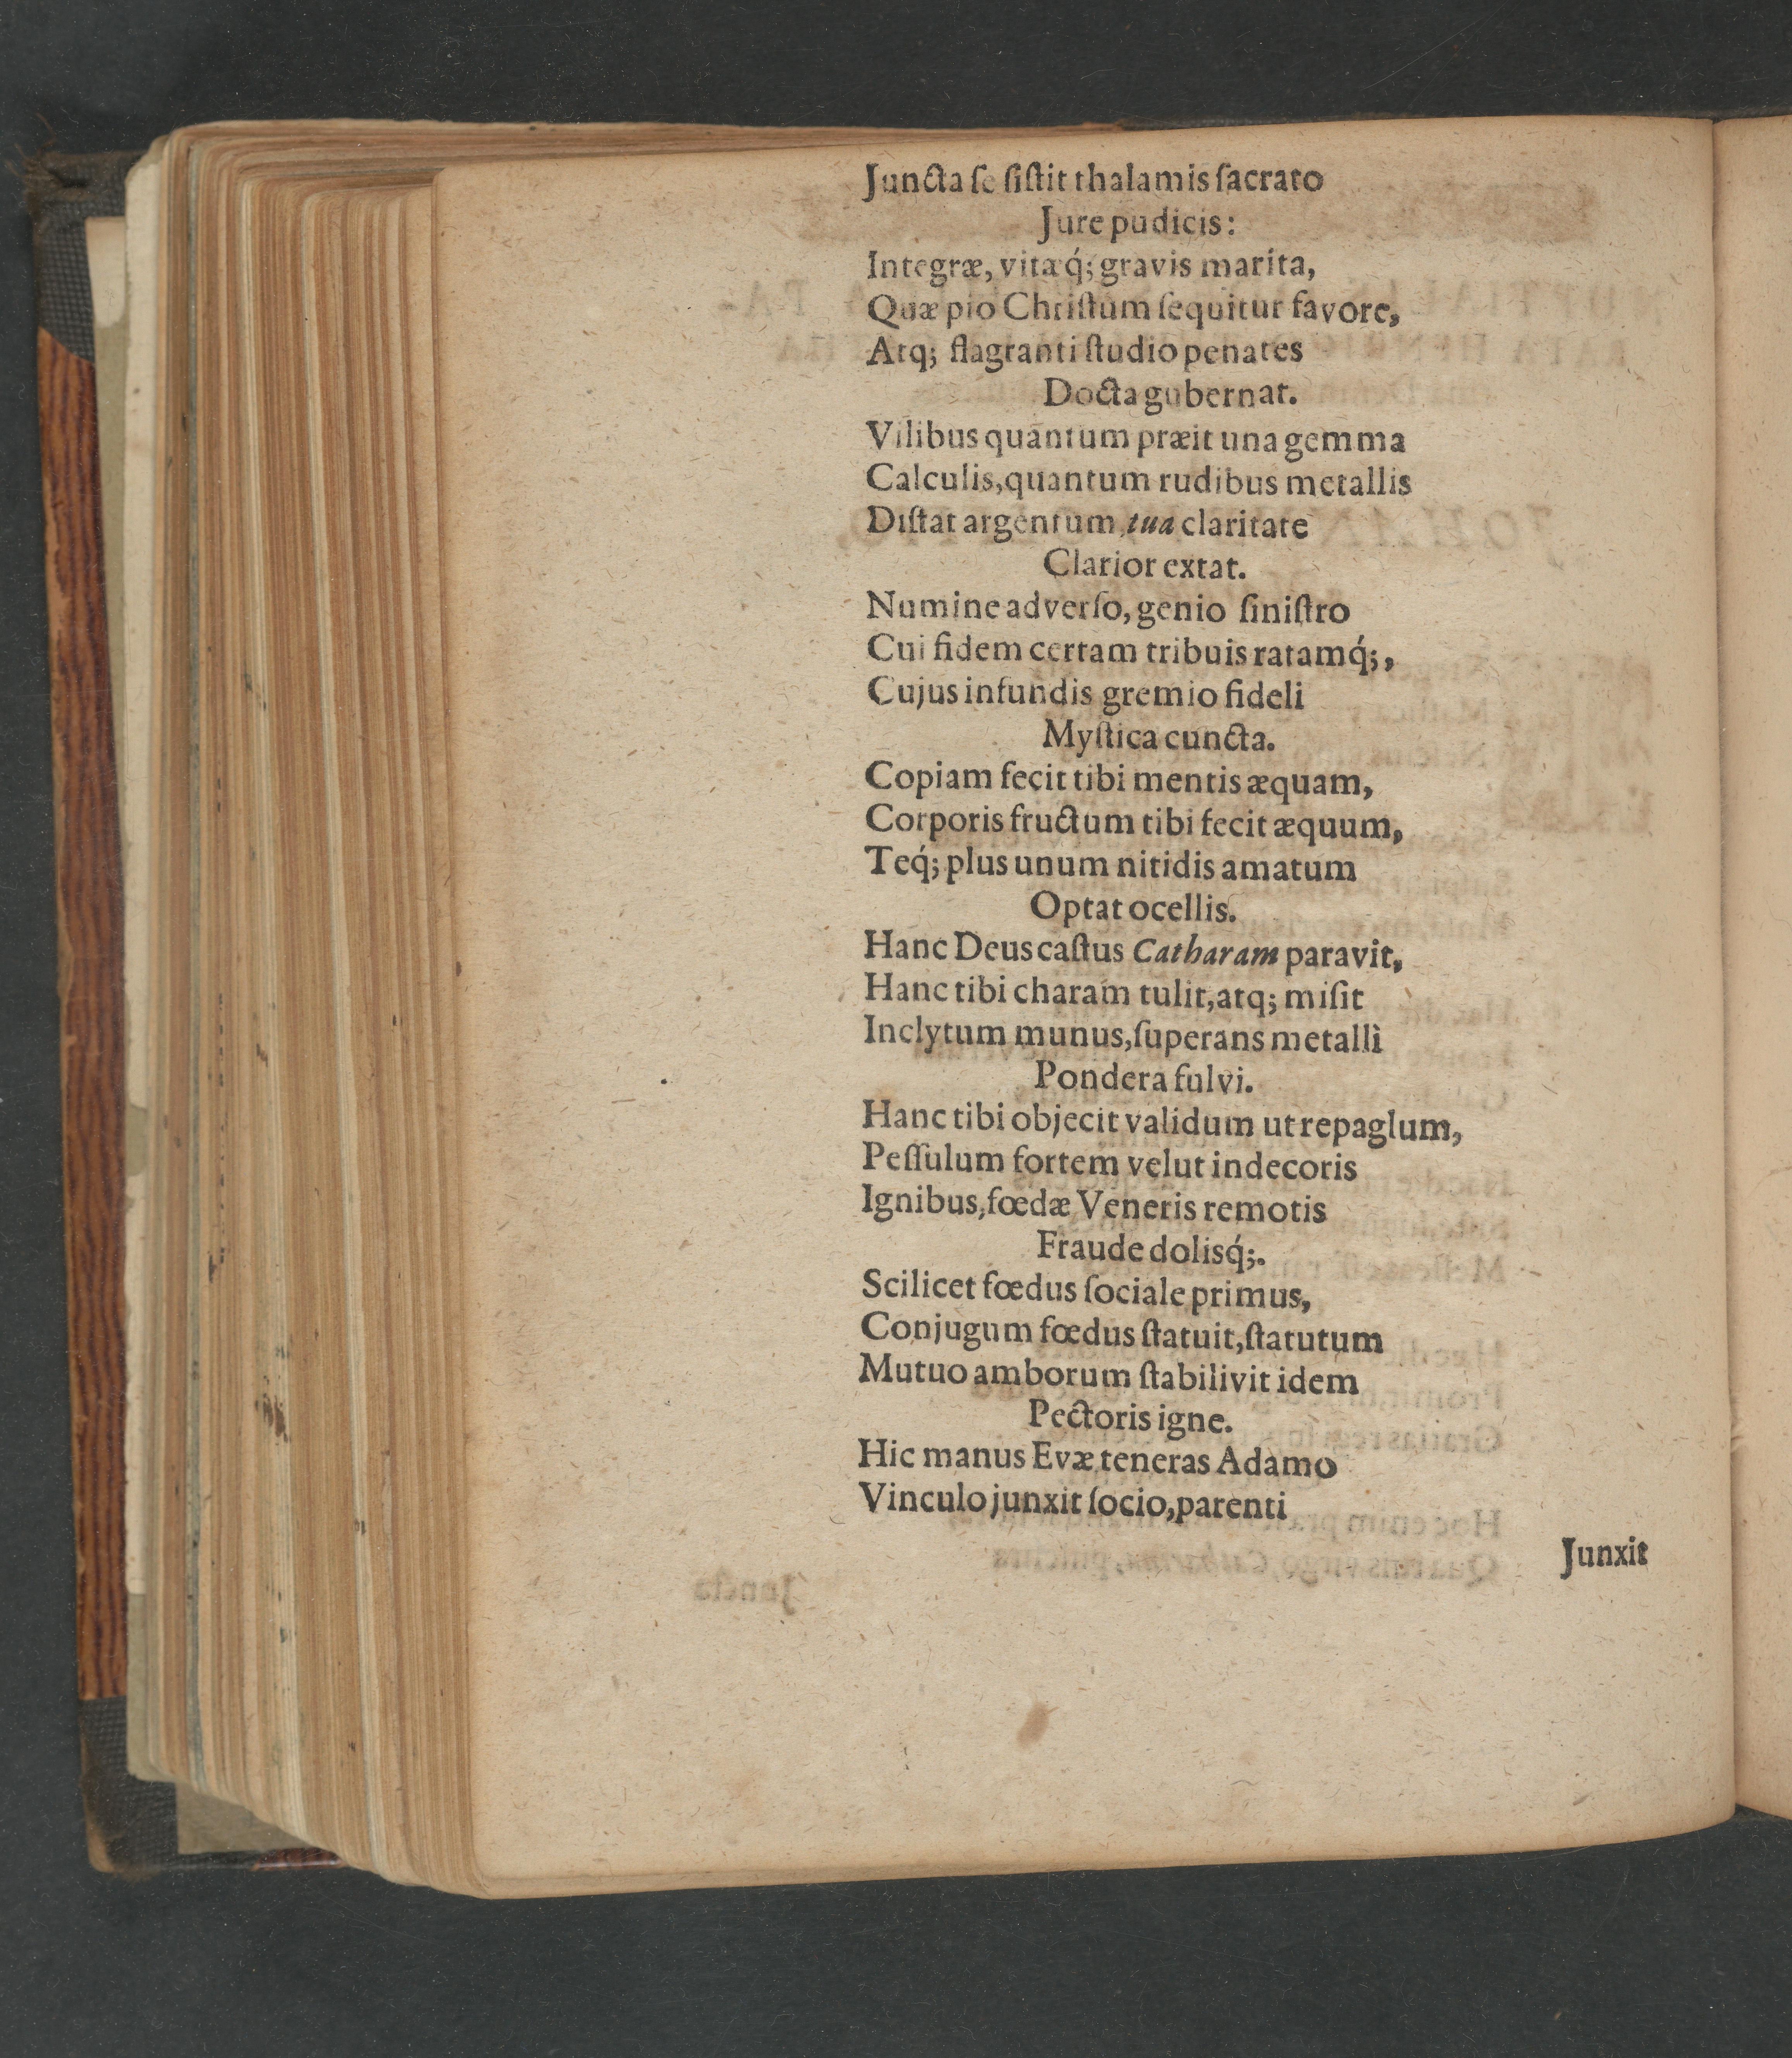 Juncta ſe ſiſtit thalamis ſacrato
Jure pudicis:
Integræ, vitæq́; gravis marita,
Quæ pio Chriſtum ſequitur favore,
Atq; flagranti ſtudio penates
Docta gubernat.
Vilibus quantum præit una gemma
Calculis, quantum rudibus metallis
Diſtat argentum, tua claritate
Clarior extat.
Numine adverſo, genio ſiniſtro
Cui fidem certam tribuis ratamq́;,
Cujus infundis gremio fideli
Myſtica cuncta.
Copiam fecit tibi mentis æquam,
Corporis fructum tibi fecit æquum,
Teq́; plus unum nitidis amatum
Optat ocellis.
Hanc Deus caſtus Catharam paravit,
Hanc tibi charam tulit, atq; miſit
Inclytum munus, ſuperans metallì
Pondera fulvi.
Hanc tibi objecit validum ut repaglum,
Peſſulum fortem velut indecoris
Ignibus, fœdæ Veneris remotis
Fraude dolisq́;.
Scilicet fœdus ſociale primus,
Conjugum fœdus ſtatuit, ſtatutum
Mutuo amborum ſtabilivit idem
Pectoris igne.
Hic manus Evæ teneras Adamo
Vinculo junxit ſocio, parenti
Junxit